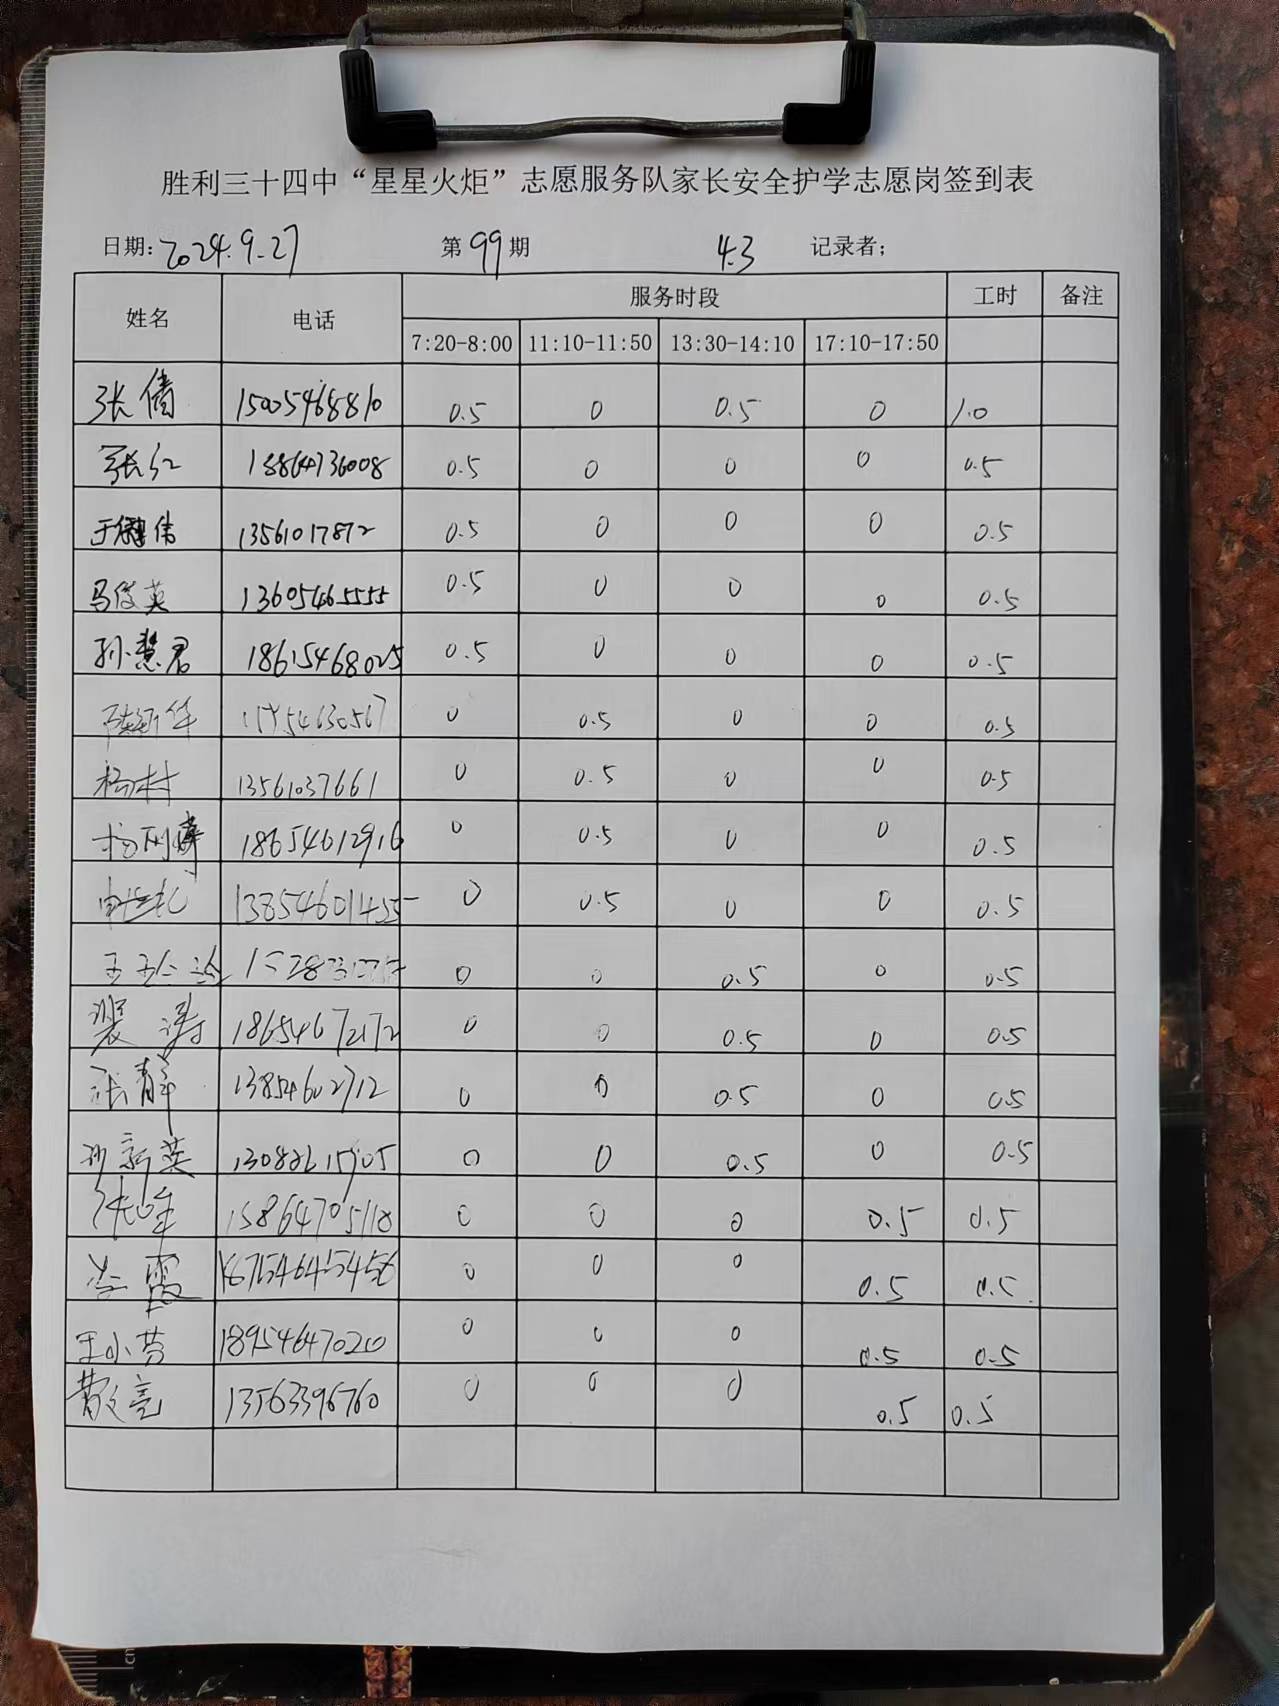 胜利三十四中“星星火炬”志愿服务队家长安全护学志愿岗签到表
日期: 2024.9.27 第 99 期 4.3 记录者;
姓名 电话 服务时段 工时 备注
7:20-8:00 11:10-11:50 13:30-14:10 17:10-17:50
张倩 15005468810 0.5 0 0.5 0 1.0
张红 18864736008 0.5 0 0 0 0.5
13561017872 0.5 0 0 0 0.5
马俊英 13605465555 0.5 0 0 0 0.5
孙慧君 18615468025 0.5 0 0 0 0.5
0 0.5 0 0 0.5
杨村 13561037661 0 0.5 0 0 0.5
18654612916 0 0.5 0 0 0.5
13854601455 0 0.5 0 0 0.5
0 0 0.5 0 0.5
裴涛 18654672172 0 0 0.5 0 0.5
张静 13854602712 0 0 0.5 0 0.5
孙新英 0 0 0.5 0 0.5
15864705118 0 0 0 0.5 0.5
0 0 0 0.5 0.5
王小芳 18954647020 0 0 0 0.5 0.5
13563396760 0 0 0 0.5 0.5